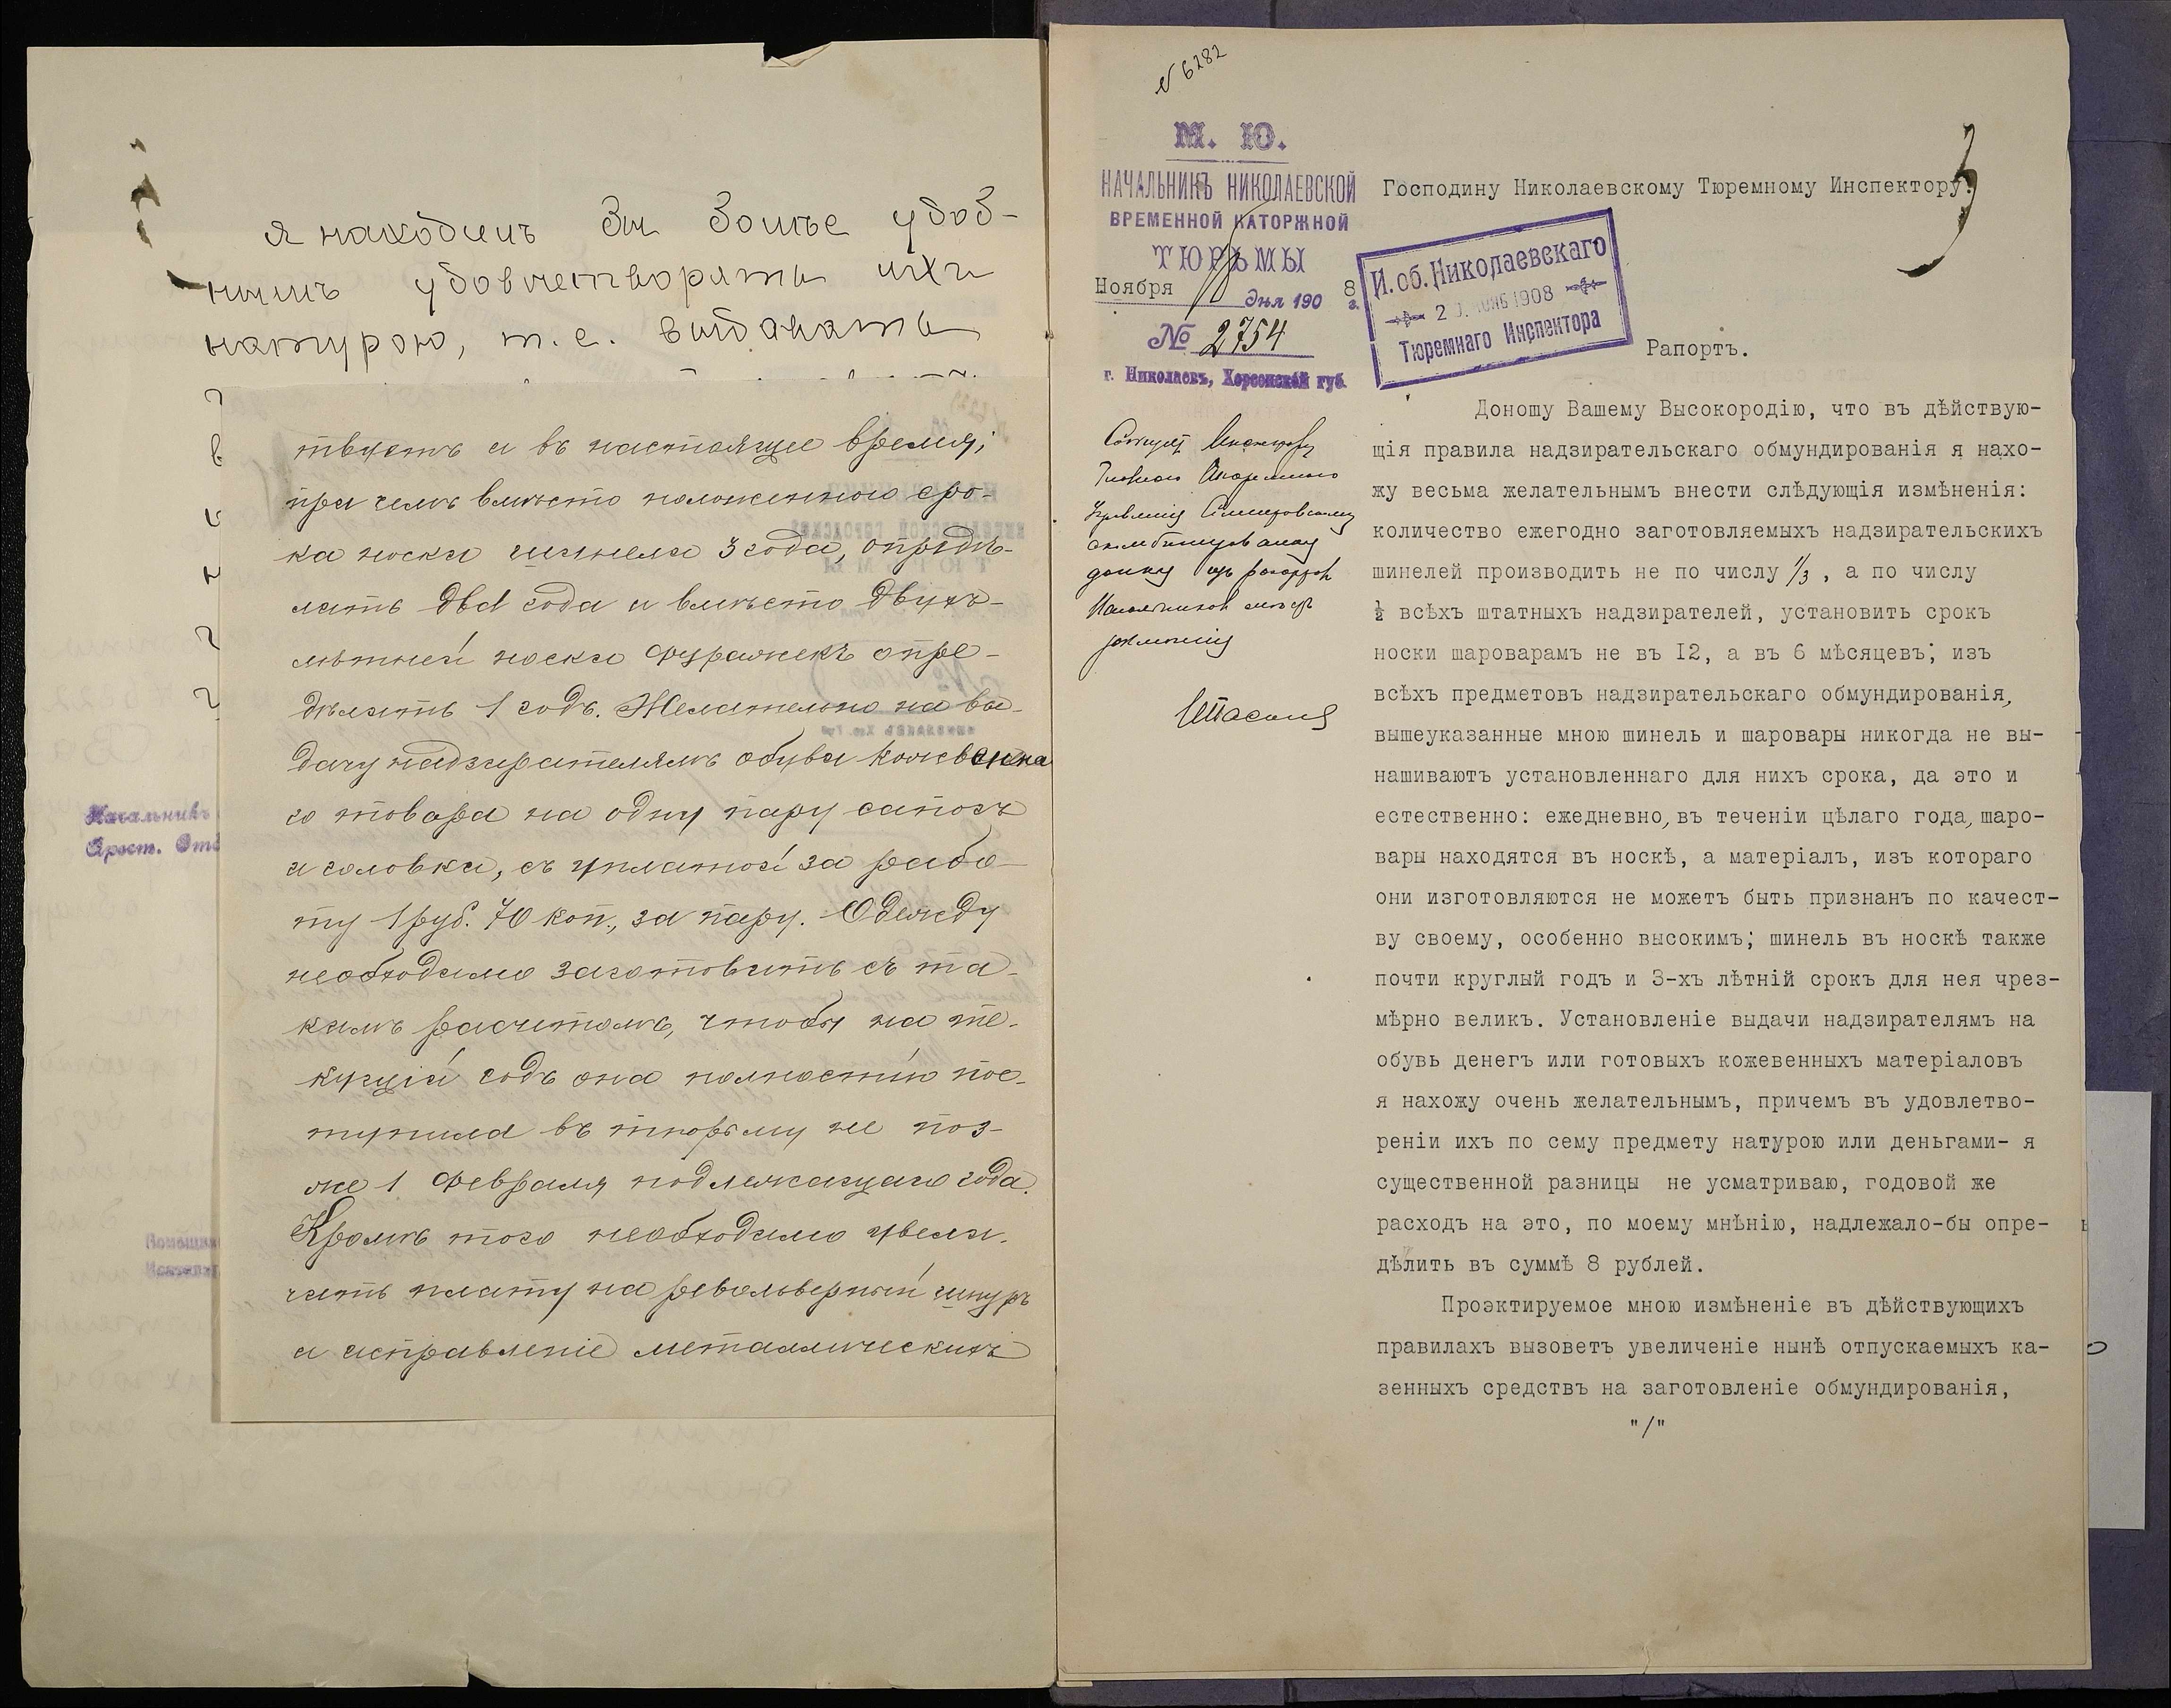 я находилъ бы болѣе удоб-
нымъ удовлетворять ихъ
натурою, т.е. выдавать
твуетъ и въ настоящее время;
при чемъ вмѣсто положеннаго сро-
ка носки шинели 3 года, опредѣ-
лить два года и вмѣсто двухъ-
лѣтней носки фуражекъ опре-
дѣлить 1 годъ. Желательно на вы-
дачу надзирателямъ обуви кожевенна
го товара на одну пару сапогъ
и головки, съ уплатой за рабо-
ту 1 руб. 70 коп., за пару. Одежду
необходимо заготовить съ та-
кимъ расчетомъ, чтобы на те-
кущій годъ она полностію пос-
тупила въ тюрьму не поз-
же 1 февраля подлежащаго года.
Кромѣ того необходимо увели-
чить плату на револьверный шнуръ
и исправленіе металлическихъ
Начальникъ
Арест. Отд
Помощни
№ 6282
М. Ю.
НАЧАЛЬНИКЪ НИКОЛАЕВСКОЙ
ВРЕМЕННОЙ КАТОРЖНОЙ
ТЮРЬМЫ
Ноября 18 дня 1908 г.
№ 2754
г. Николаевъ, Херсонской губ.
3
Господину Николаевскому Тюремному Инспектору.
И. об. Николаевскаго
20. НОЯБ 1908
Тюремнаго Инспектора
Рапортъ.
Доношу Вашему Высокородію, что въ дѣйствую-
щія правила надзирательскаго обмундированія я нахо-
жу весьма желательнымъ внести слѣдующія измѣненія:
количество ежегодно заготовляемыхъ надзирательскихъ
шинелей производить не по числу 1/3, а по числу
½ всѣхъ штатныхъ надзирателей, установить срокъ
носки шароварамъ не въ I2, а въ 6 мѣсяцевъ; изъ
всѣхъ предметовъ надзирательскаго обмундированія,
вышеуказанные мною шинель и шаровары никогда не вы-
нашиваютъ установленнаго для нихъ срока, да это и
естественно: ежедневно, въ теченіи цѣлаго года, шаро-
вары находятся въ носкѣ, а матеріалъ, изъ котораго
они изготовляются не можетъ быть признанъ по качест-
ву своему, особенно высокимъ; шинель въ носкѣ также
почти круглый годъ и 3-хъ лѣтній срокъ для нея чрез-
мѣрно великъ. Установленіе выдачи надзирателямъ на
обувь денегъ или готовыхъ кожевенныхъ матеріаловъ
я нахожу очень желательнымъ, причемъ въ удовлетво-
реніи ихъ по сему предмету натурою или деньгами- я
существенной разницы не усматриваю, годовой же
расходъ на это, по моему мнѣнію, надлежало-бы опре-
дѣлить въ суммѣ 8 рублей.
Проэктируемое мною измѣненіе въ дѣйствующихъ
правилахъ вызоветъ увеличеніе нынѣ отпускаемыхъ ка-
зенныхъ средствъ на заготовленіе обмундированія,
"/"